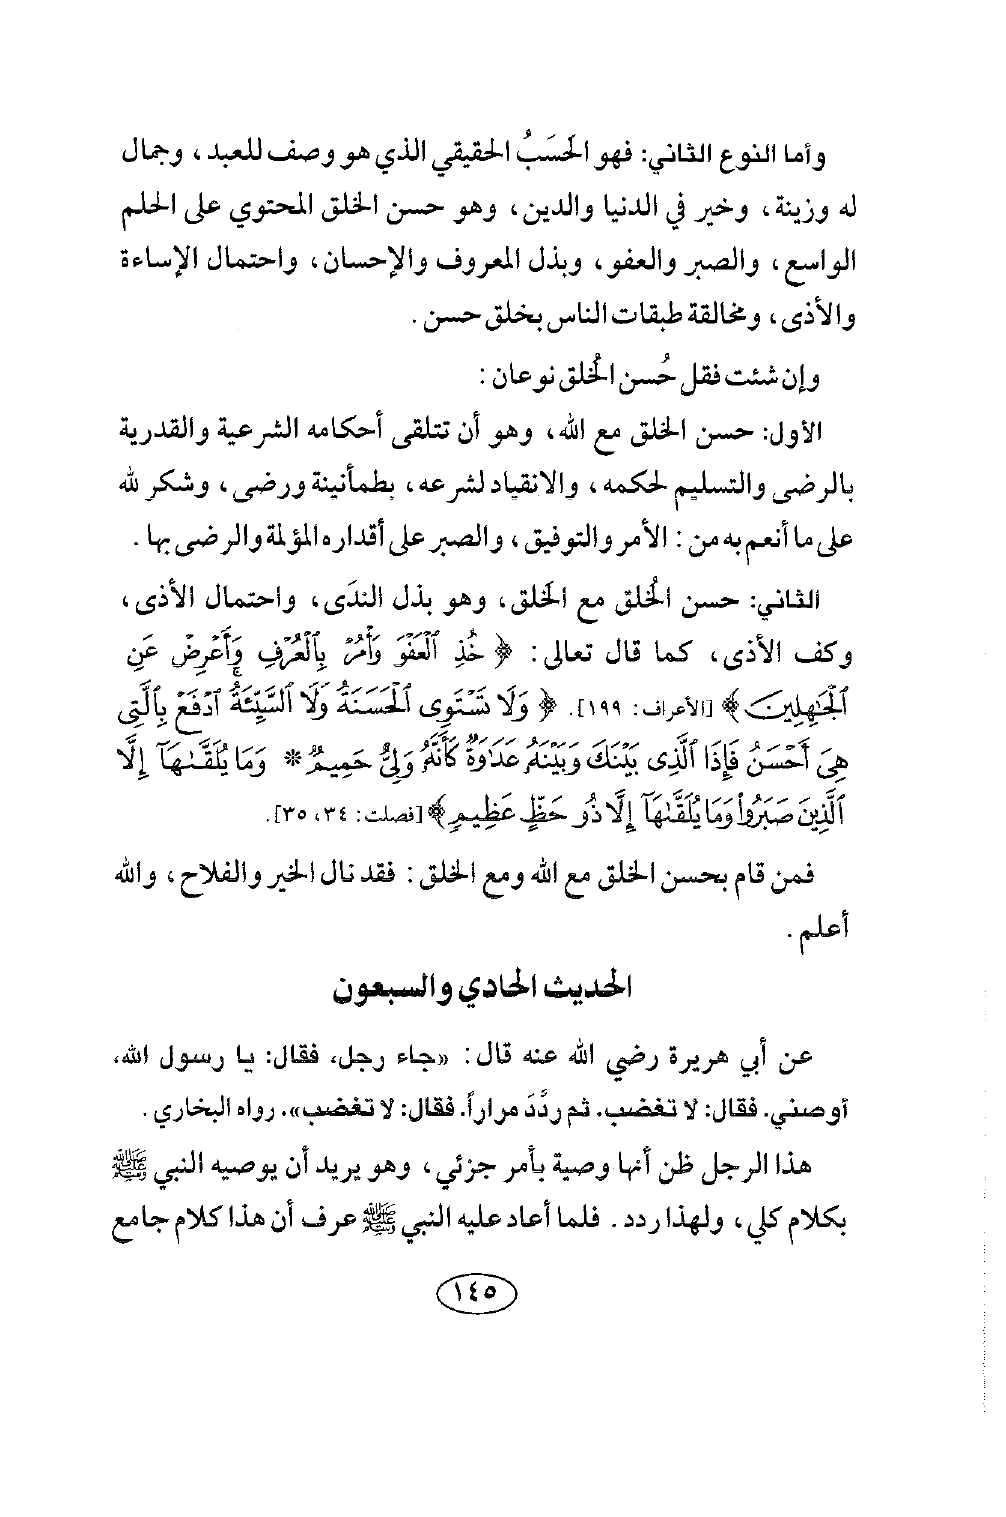 وأما النوع الثاني: فهو الحَسَبُ الحقيقي الذي هو وصف للعبد، وجمال
له وزينة، وخير في الدنيا والدين، وهو حسن الخلق المحتوي على الحلم
الواسع، والصبر والعفو، وبذل المعروف والإحسان، واحتمال الإساءة
والأذى، ومخالقة طبقات الناس بخلق حسن.
وإن شئت فقل حُسن الخُلق نوعان:
الأول: حسن الخلق مع الله، وهو أن تتلقى أحكامه الشرعية والقدرية
بالرضى والتسليم لحكمه، والانقياد لشرعه، بطمأنينة ورضى، وشكر لله
على ما أنعم به من: الأمر والتوفيق، والصبر على أقداره المؤلمة والرضى بها.
الثاني: حسن الخُلق مع الخَلق، وهو بذل الندَى، واحتمال الأذى،
وكف الأذى، كما قال تعالى: ﴿ خُذِ ٱلْعَفْوَ وَأْمُرْ بِٱلْعُرْفِ وَأَعْرِضْ عَنِ
ٱلْجَٰهِلِينَ ﴾ [الأعراف: ١٩٩]. ﴿ وَلَا تَسْتَوِى ٱلْحَسَنَةُ وَلَا ٱلسَّيِّئَةُ ٱدْفَعْ بِٱلَّتِى
هِىَ أَحْسَنُ فَإِذَا ٱلَّذِى بَيْنَكَ وَبَيْنَهُۥ عَدَٰوَةٌ كَأَنَّهُۥ وَلِىٌّ حَمِيمٌ * وَمَا يُلَقَّىٰهَآ إِلَّا
ٱلَّذِينَ صَبَرُوا۟ وَمَا يُلَقَّىٰهَآ إِلَّا ذُو حَظٍّ عَظِيمٍ ﴾ [فصلت: ٣٤، ٣٥].
فمن قام بحسن الخلق مع الله ومع الخلق: فقد نال الخير والفلاح، والله
أعلم.
الحديث الحادي والسبعون
عن أبي هريرة رضي الله عنه قال: «جاء رجل، فقال: يا رسول الله،
أوصني. فقال: لا تغضب. ثم ردَّدَ مراراً. فقال: لا تغضب». رواه البخاري.
هذا الرجل ظن أنها وصية بأمر جزئي، وهو يريد أن يوصيه النبي ﷺ
بكلام كلي، ولهذا ردد. فلما أعاد عليه النبي ﷺ عرف أن هذا كلام جامع
١٤٥